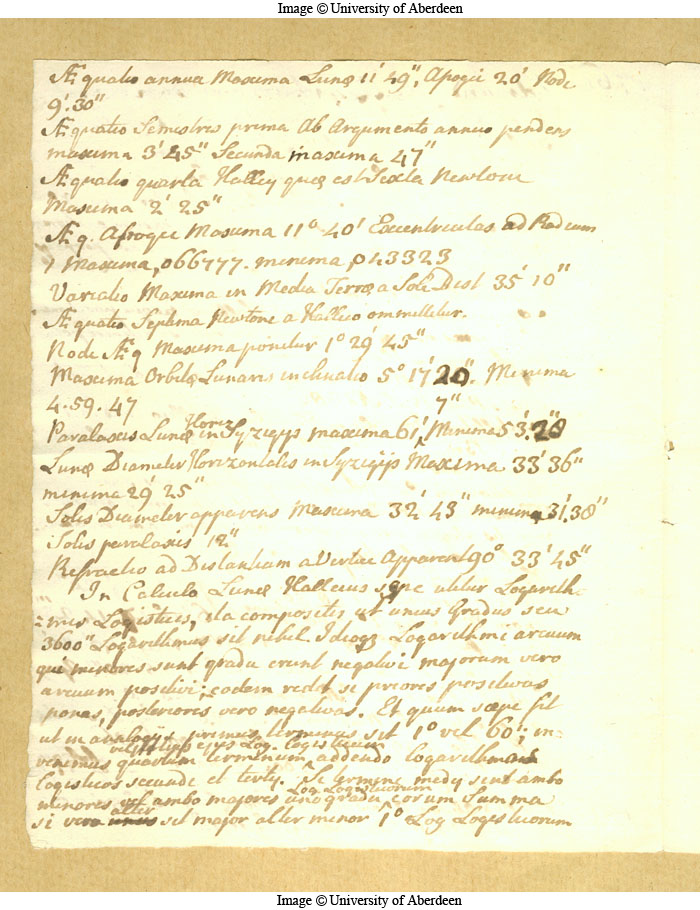 Image © University of Aberdeen
Æquatio annua Maxima Lunæ 11' 49", Apogei 20' Nodi
9'.30"
Æquatio Semestris prima Ab Argumento annuo pendens
maxima 3' 45" Secunda maxima 47"
Æquatio quarta Halley quæ est Sexta Newtoni
Maxima 2' 25"
Æq. Apogei Maxima 11° 40' Excentricitas ad Radium
1 Maxima ,066777. minima ,043323
Variatio Maxima in Media Terræ a Sole Dist 35' 10"
Æquatio Septima Newtoni a Halleio ommittitur.
Nodi Æq Maxima ponitur 1° 29' 45"
Maxima Orbitæ Lunaris inclinatio 5° 17' 20". Minima
4.59.47
Paralaxis Lunæ Horiz in Syzigijs maxima 61' 7" Minima 53'.28
Lunæ Diameter Horizontalis in Syzigijs Maxima 33' 36"
minima 29' 25"
Solis Diameter apparens Maxima 32' 43" minima 31'.38"
Solis paralaxis 12"
Refractio ad Distantiam a Vertice Apparent 90° 33' 45"
In Calculo Lunæ Halleius sæpe utitur Logarith-
=mis Logisticis, ita compositis ut unius Gradus seu
3600" Logarithmus sit nihil. Ideoqz Logarithmi arcuum
qui minores sunt gradu erunt negativi majorum vero
arcuum positivi; eodem redit si priores positivas
ponas, posteriores vero negativas. Et quum sæpe fit
ut in analogijs primus terminus sit 1° vel 60'; in-
venimus quartum terminum, vel potius ejus Log. logisticum addendo logarithmos
logisticos secundi et tertij. Si termini medij sint ambo
minores vel ambo majores uno gradu, Log Logisticorum eorum Summa
si vero alter sit major alter minor 1° Log Logisticorum
Image © University of Aberdeen